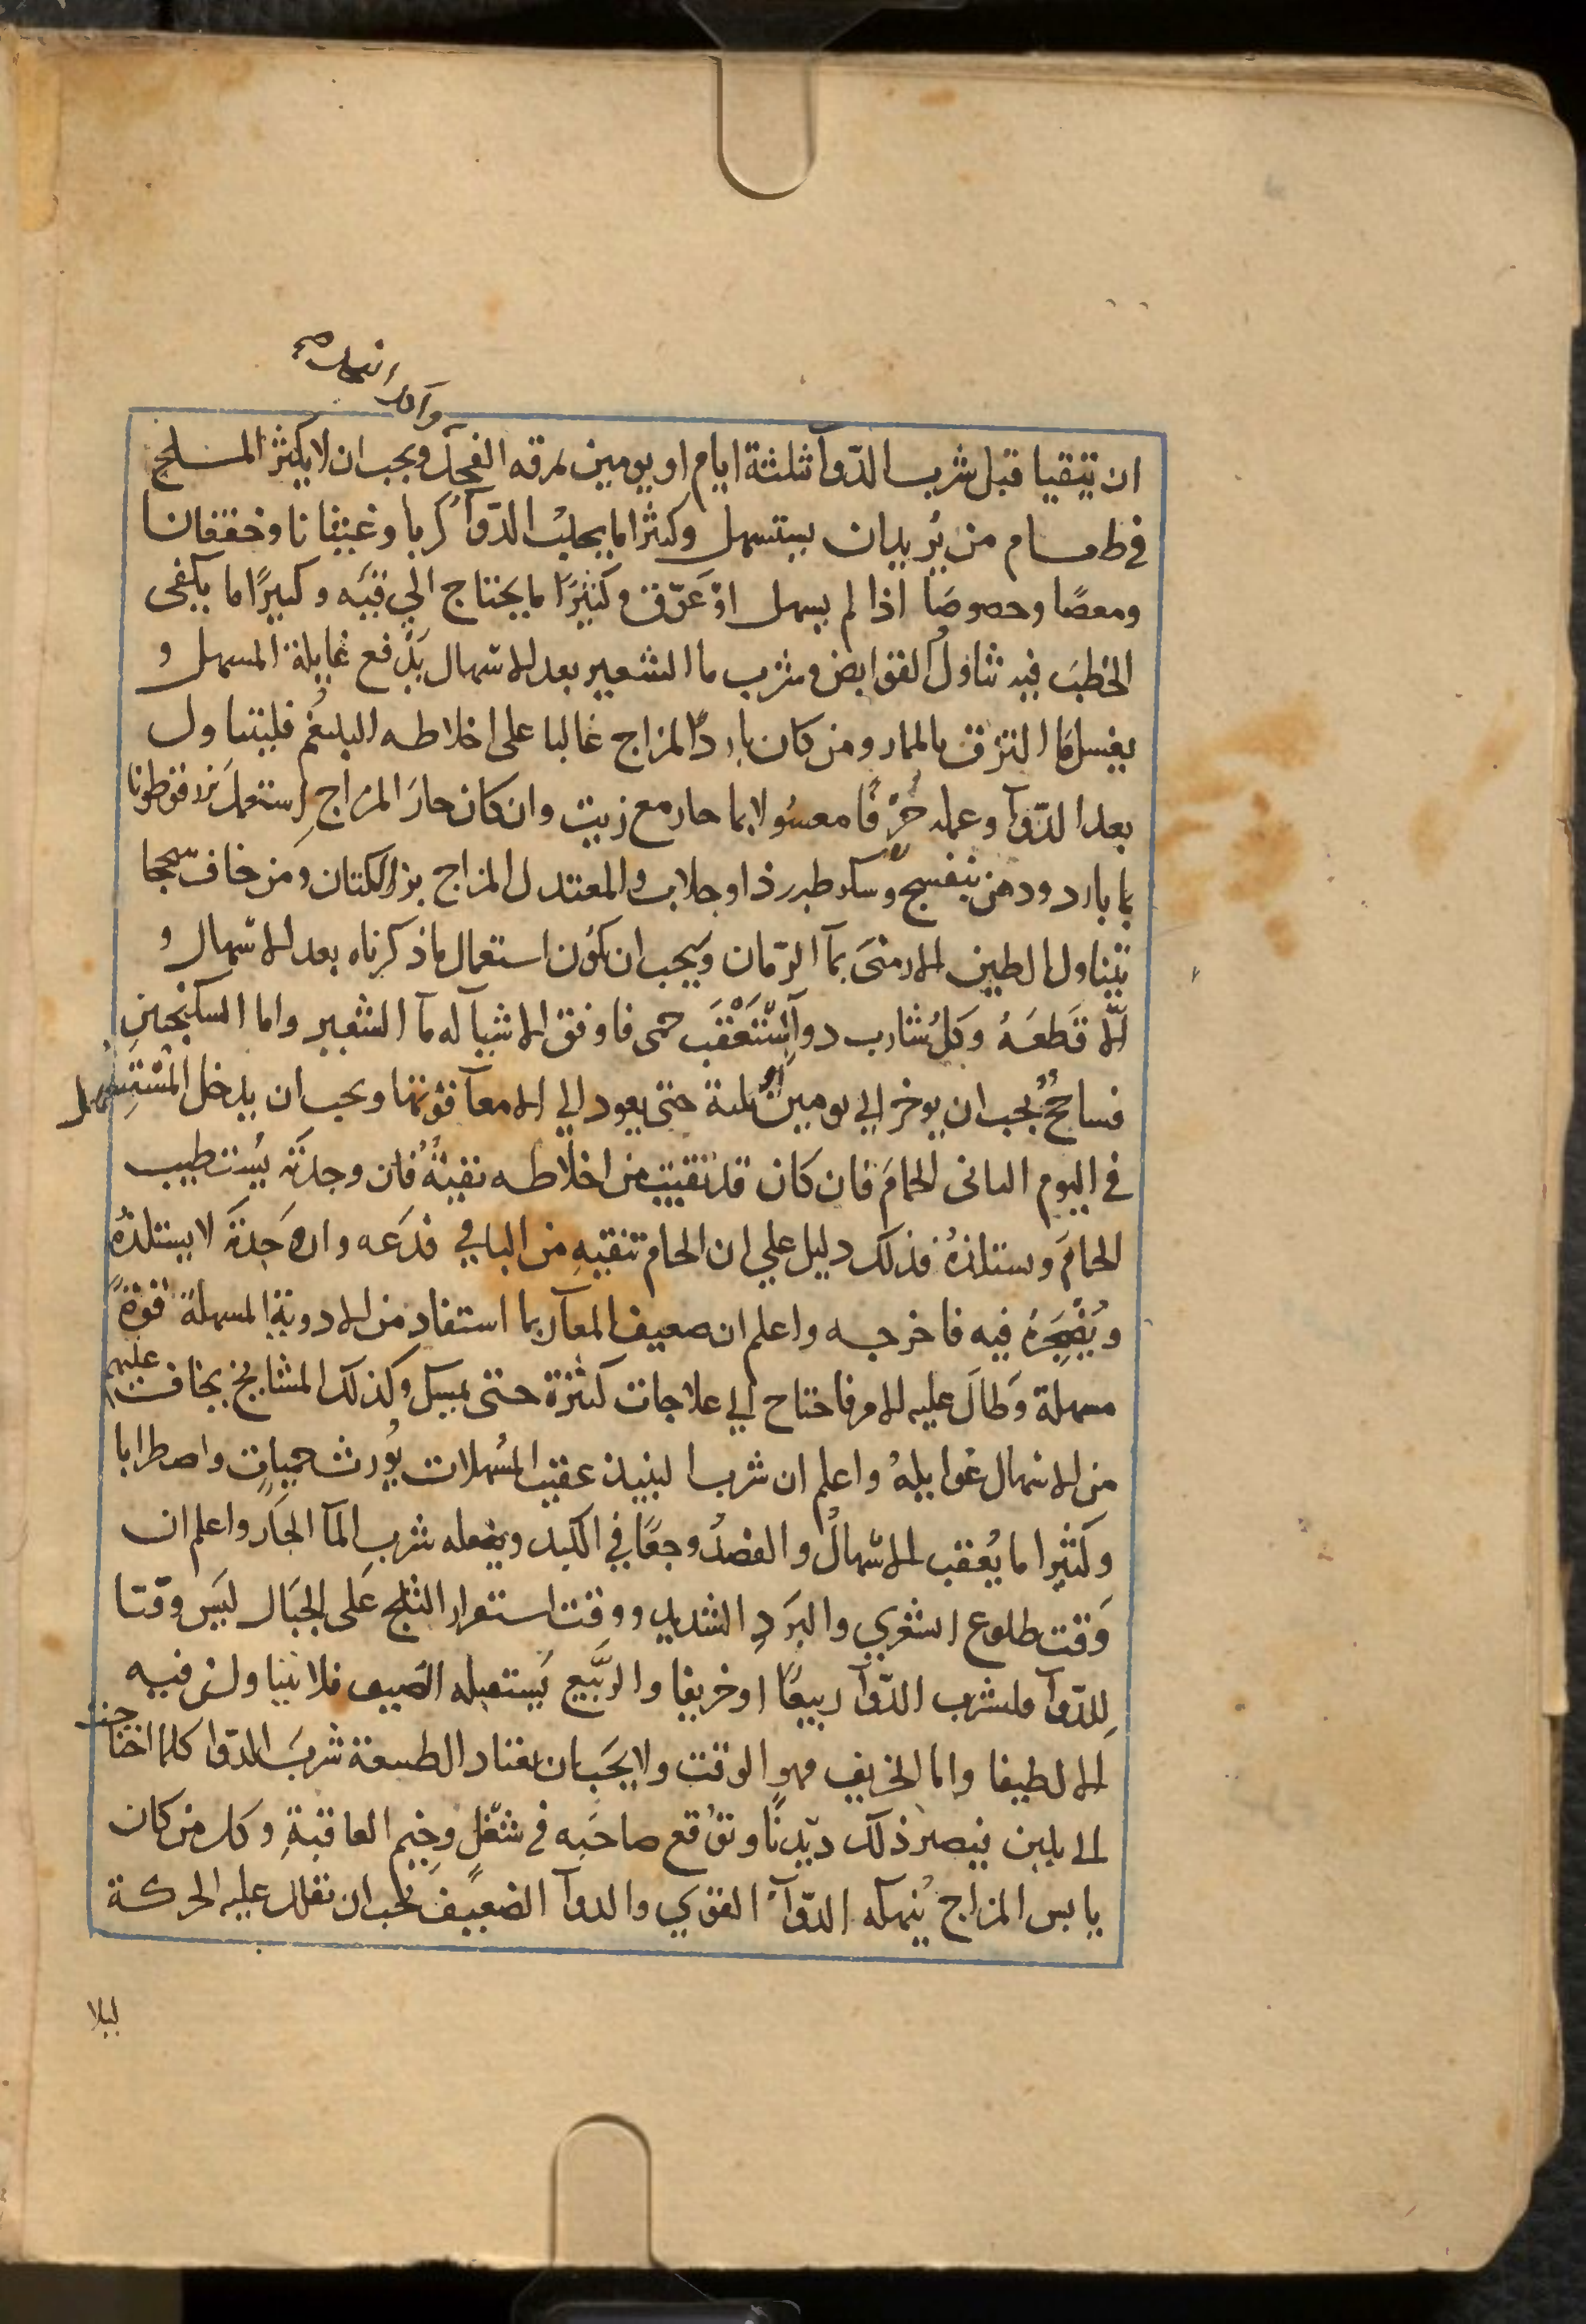 ان يتقيا قبل شرب الدوآ ثلثة ايام او يومين بمرقه الفجل ويجب ان لا يكثر الملح
في طعام من يريد ان يستسهل وكثرا ما يجلب الدوآ كربا وغثيانا وخفقانا
ومعصًا وحصوصًا اذا لم يسهل اوْ عَوّق وكثيرًا ما يحتاج الي قيَه وكثيرًا ما يكفى
الخطبَ فيه تناولُ القوابض وشرب ما الشعير بعد الاسهال يَدْفع غايلة المسهل و
يغسل ما التزق بالممار ومن كان باردَ المزاج غالبا على اخلاطه البلغُم فليتناول
بعد الدّوآ وعمله حُرْفًا مغسُولا بما حار مع زيت وان كان حارَ المزاج اِستعملَ بزرقطونا
بما بارد ودهن بنفسج وسكر طبرزذ او جلاب والمعتدل المزاج بزر الكتان ومن خاف سحجا
تناول الطين الارمنىَ بمآ الرّمان ويَجب ان يكون استعمال ما ذكرناه بعد الاسهال و
الّا قَطعَهُ وَكل شارب دوآ اِسْتَعْقَب حمى فاوفق الاشيآ له مآ الشعير واما السكنجبين
فساحجٌ يجب ان يوخر الي يومين اوْ ثلثة حتى يعود الي الامعآ قوتها ويجب ان يدخل المُسْتَسهل
في اليوم الثانى الحمامَ فان كان قد تقيت من اخلاطه بقيةٌ فان وجدتَه يُستطيب
الحمامَ ويستلذهُ فذلك دليل علي ان الحمام تنقيهِ من الباقي فدَعه وان وَجدتَه لا يستلذهُ
ويُضجره فيه فاخرجه واعلم ان ضعيف المعآ ربما استفاد من الادوية المسهلة قوّةً
مسهلة وَطالَ عليه الامر فاحتاج الي علاجات كثرة حتى يمسك وكذلك المشايخ يخاف عليهم
من الاسهال غوايلهُ واعلم ان شرب النبيذ عقيب المُسهلات يُورث حميات واضطرابا
وكثيرا ما يُعقب الاسهالُ والفصدُ وجعًا في الكبد ويفعله شرب المآ الحَار واعلم ان
وَقت طلوع الشعري والبرَدِ الشديد ووقت استقرار الثلج عَلى الجبَال ليَس وقتا
لِلدّوآ فليشرب الدّوآ ربيعًا او خريفا والربَّيع يَستقبله الصَيف فلا يتناولن فيه
الا لطيفا واما الخريف فهو الوقت ولا يجَب ان يعتاد الطبيعة شربَ الدّوا كلما احتاجت
الي يلين فيصر ذلك ديّدنًا وتوقع صاحبَه في شُغّل وخيم العاقبةِ وكل من كان
يابس المزاج يُنهكه الدّوآءُ القوي والدوآ الضعيف يجب ان تقلل عليه الحركة
ليلا